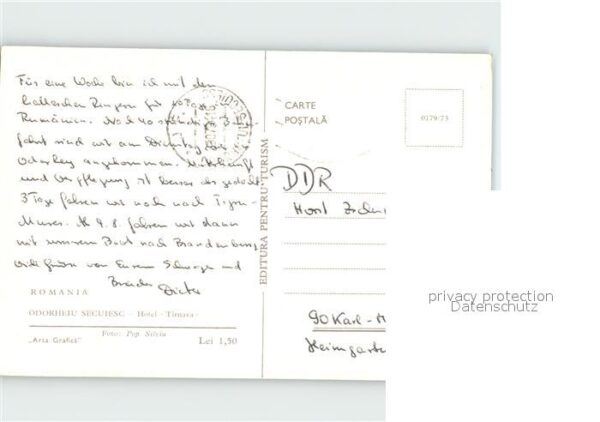 Für eine Woche bin ich mit den
halleschen Ringern für
Rumänien. Nach 40 stündiger
fahrt sind wir am Dienstag
angekommen. Unterkunft
und Verpflegung ist besser als gedacht
3 Tage fahren wir noch nach
Mures. Ab 9.8. fahren wir dann
mit unserem Boot nach Brandenburg
Viele Grüße von Eurem Schwager und
Bruder Dieter
ROMANIA
ODORHEIU SECUIESC – Hotel „Tîrnava"
Foto: Pop Silviu
„Arta Grafică" Lei 1,50
EDITURA PENTRU TURISM
CARTE
POȘTALĂ
0179/73
DDR
Horst
90 Karl-M
Heimgarte
privacy protection
Datenschutz